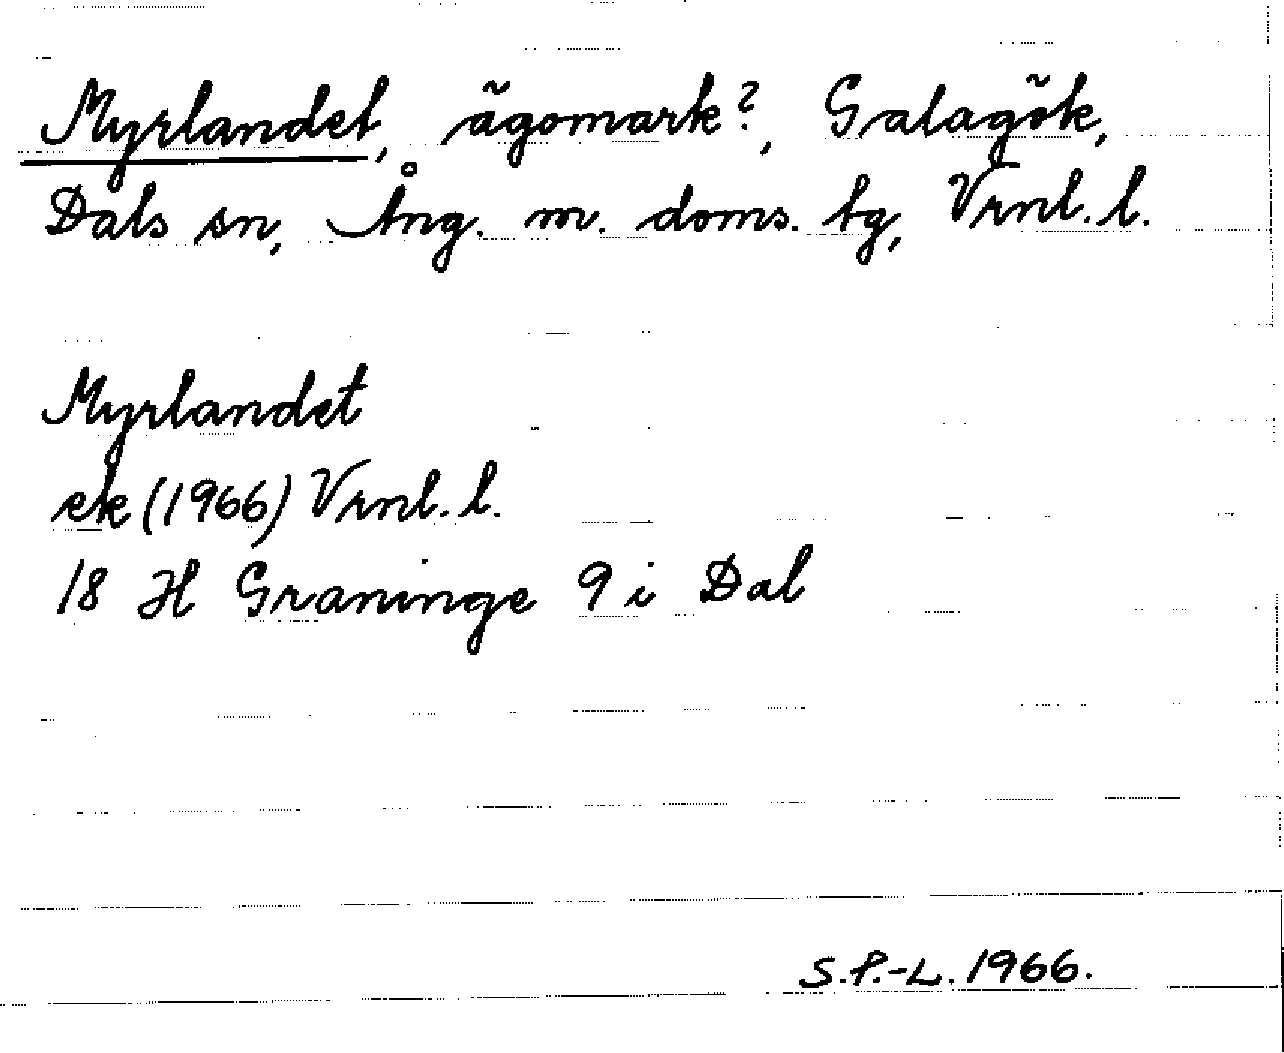 Myrlandet, ägomark?, Galagök,
Dals sn, Ång. m. doms. tg, Vrnl. l.
Myrlandet
ek (1966) Vrnl. l.
18 H Graninge 9 i Dal
S.P.-L. 1966.